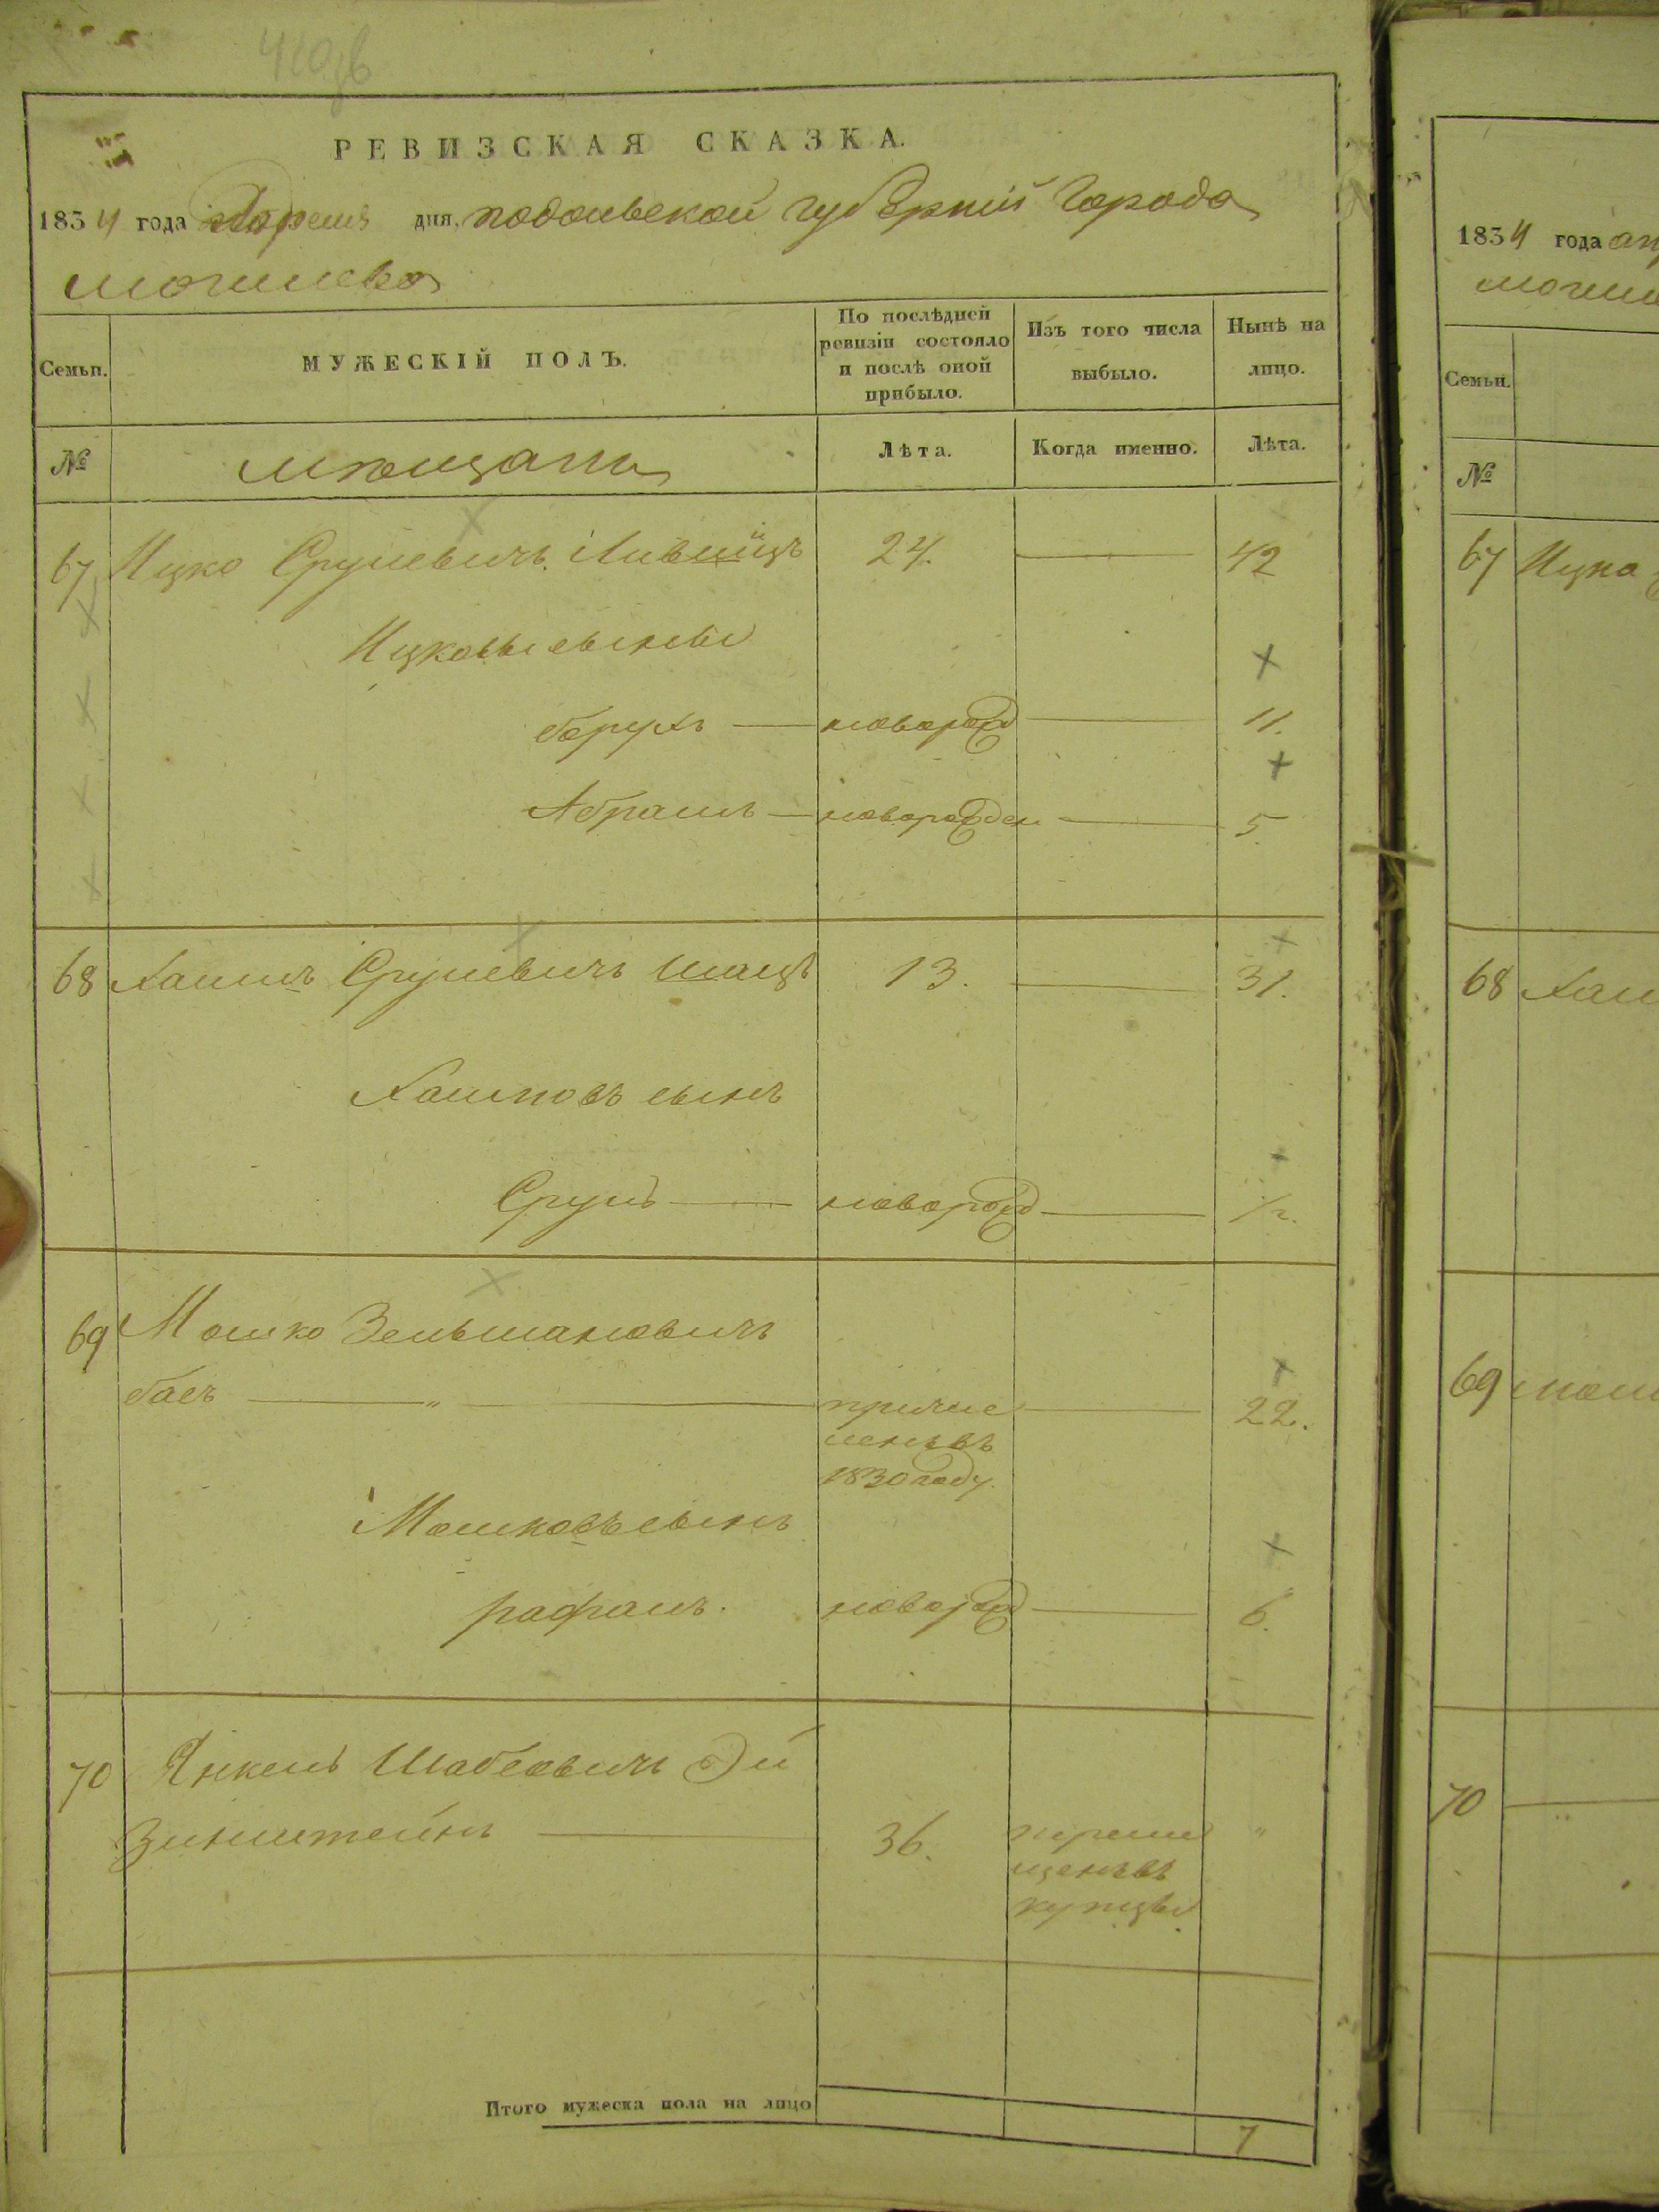 410 зв
РЕВИЗСКАЯ СКАЗКА.
1834 года Апреля дня, подольской губерний Города
могилева
Семьи.
МУЖЕСКІЙ ПОЛЪ.
По послѣдней ревизіи состояло и послѣ оной прибыло.
Изъ того числа выбыло.
Нынѣ на лицо.
№
мѣщани
Лѣта.
Когда именно.
Лѣта.
67 Ицко Срулевичъ Лившицъ 24. 42
Ицковы сыны
борухъ новорожд 11.
Абрамъ новорожден 5
68 Хаимъ Срулевичъ Шацъ 13. 31.
Хаимовъ сынъ
Сруль новорожд 1/2.
69 Мошко Зельмановичъ
басъ " причис 22.
ленъ въ
1830 году.
Мошковъ сынъ
рафаилъ. новорожд 6.
70 Янкель Шабсовичъ Эй
зинштейнъ 36. перече "
щенъ въ
купцы.
Итого мужеска пола на лицо
7
1834 года ап
могиле
Семьи.
№
67 Ицка
68 Хаи
69 мош
70